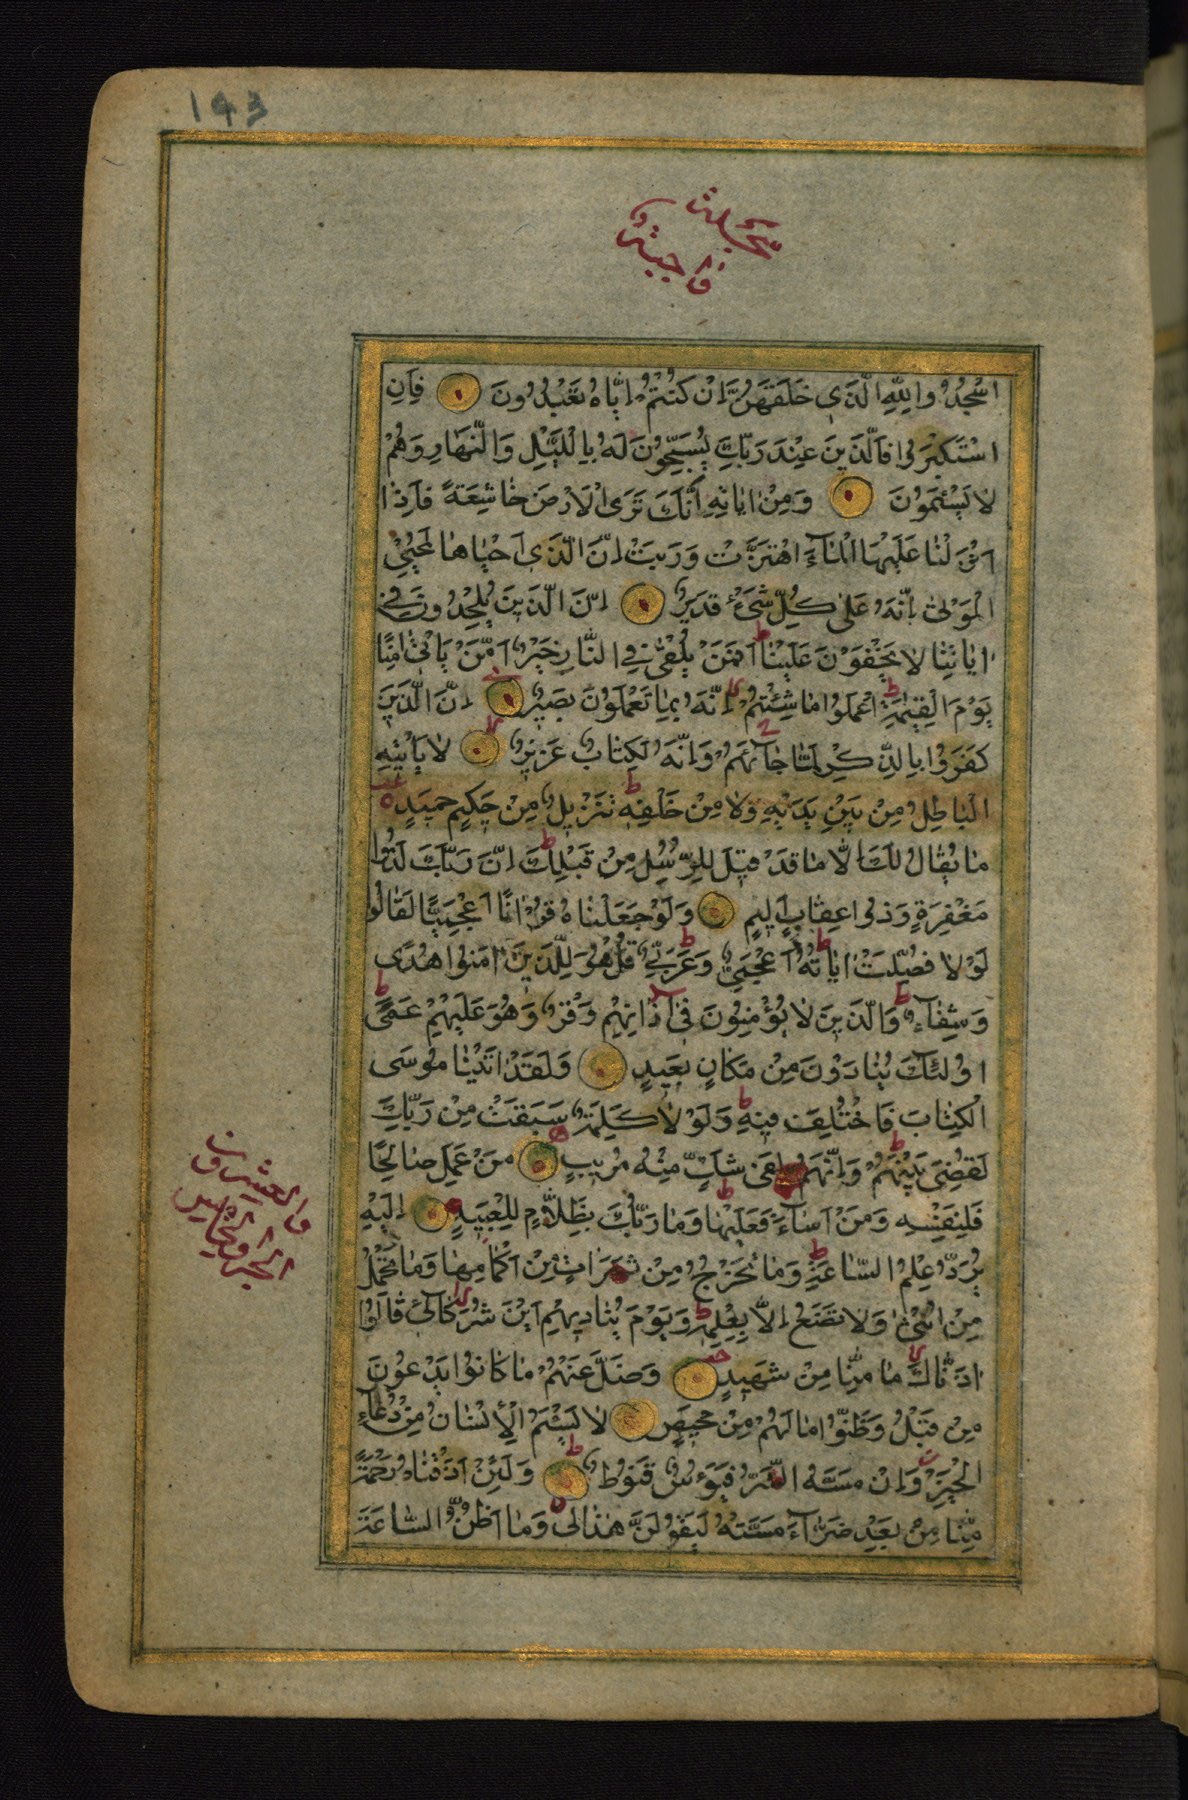 143
سجدة
اسْجُدُوا لِلَّهِ الَّذِي خَلَقَهُنَّ إِنْ كُنْتُمْ إِيَّاهُ تَعْبُدُونَ فَإِنِ
اسْتَكْبَرُوا فَالَّذِينَ عِنْدَ رَبِّكَ يُسَبِّحُونَ لَهُ بِاللَّيْلِ وَالنَّهَارِ وَهُمْ
لَا يَسْئَمُونَ وَمِنْ آيَاتِهِ أَنَّكَ تَرَى الْأَرْضَ خَاشِعَةً فَإِذَا
أَنْزَلْنَا عَلَيْهَا الْمَاءَ اهْتَزَّتْ وَرَبَتْ إِنَّ الَّذِي أَحْيَاهَا لَمُحْيِي
الْمَوْتَىٰ إِنَّهُ عَلَىٰ كُلِّ شَيْءٍ قَدِيرٌ إِنَّ الَّذِينَ يُلْحِدُونَ فِي
آيَاتِنَا لَا يَخْفَوْنَ عَلَيْنَا أَفَمَنْ يُلْقَىٰ فِي النَّارِ خَيْرٌ أَمَّنْ يَأْتِي آمِنًا
يَوْمَ الْقِيٰمَةِ اعْمَلُوا مَا شِئْتُمْ إِنَّهُ بِمَا تَعْمَلُونَ بَصِيرٌ إِنَّ الَّذِينَ
كَفَرُوا بِالذِّكْرِ لَمَّا جَاءَهُمْ وَإِنَّهُ لَكِتَابٌ عَزِيزٌ لَا يَأْتِيهِ
الْبَاطِلُ مِنْ بَيْنِ يَدَيْهِ وَلَا مِنْ خَلْفِهِ تَنْزِيلٌ مِنْ حَكِيمٍ حَمِيدٍ
مَا يُقَالُ لَكَ إِلَّا مَا قَدْ قِيلَ لِلرُّسُلِ مِنْ قَبْلِكَ إِنَّ رَبَّكَ لَذُو
مَغْفِرَةٍ وَذُو عِقَابٍ أَلِيمٍ وَلَوْ جَعَلْنَاهُ قُرْآنًا أَعْجَمِيًّا لَقَالُوا
لَوْلَا فُصِّلَتْ آيَاتُهُ أَعْجَمِيٌّ وَعَرَبِيٌّ قُلْ هُوَ لِلَّذِينَ آمَنُوا هُدًى
وَشِفَاءٌ وَالَّذِينَ لَا يُؤْمِنُونَ فِي آذَانِهِمْ وَقْرٌ وَهُوَ عَلَيْهِمْ عَمًى
أُولَٰئِكَ يُنَادَوْنَ مِنْ مَكَانٍ بَعِيدٍ وَلَقَدْ آتَيْنَا مُوسَى
الْكِتَابَ فَاخْتُلِفَ فِيهِ وَلَوْلَا كَلِمَةٌ سَبَقَتْ مِنْ رَبِّكَ
لَقُضِيَ بَيْنَهُمْ وَإِنَّهُمْ لَفِي شَكٍّ مِنْهُ مُرِيبٍ مَنْ عَمِلَ صَالِحًا
فَلِنَفْسِهِ وَمَنْ أَسَاءَ فَعَلَيْهَا وَمَا رَبُّكَ بِظَلَّامٍ لِلْعَبِيدِ إِلَيْهِ
يُرَدُّ عِلْمُ السَّاعَةِ وَمَا تَخْرُجُ مِنْ ثَمَرَاتٍ مِنْ أَكْمَامِهَا وَمَا تَحْمِلُ
مِنْ أُنْثَىٰ وَلَا تَضَعُ إِلَّا بِعِلْمِهِ وَيَوْمَ يُنَادِيهِمْ أَيْنَ شُرَكَائِي قَالُوا
آذَنَّاكَ مَا مِنَّا مِنْ شَهِيدٍ وَضَلَّ عَنْهُمْ مَا كَانُوا يَدْعُونَ
مِنْ قَبْلُ وَظَنُّوا مَا لَهُمْ مِنْ مَحِيصٍ لَا يَسْئَمُ الْإِنْسَانُ مِنْ دُعَاءِ
الْخَيْرِ وَإِنْ مَسَّهُ الشَّرُّ فَيَؤُسٌ قَنُوطٌ وَلَئِنْ أَذَقْنَاهُ رَحْمَةً
مِنَّا مِنْ بَعْدِ ضَرَّاءَ مَسَّتْهُ لَيَقُولَنَّ هَٰذَا لِي وَمَا أَظُنُّ السَّاعَةَ
الجزء الخامس
والعشرون